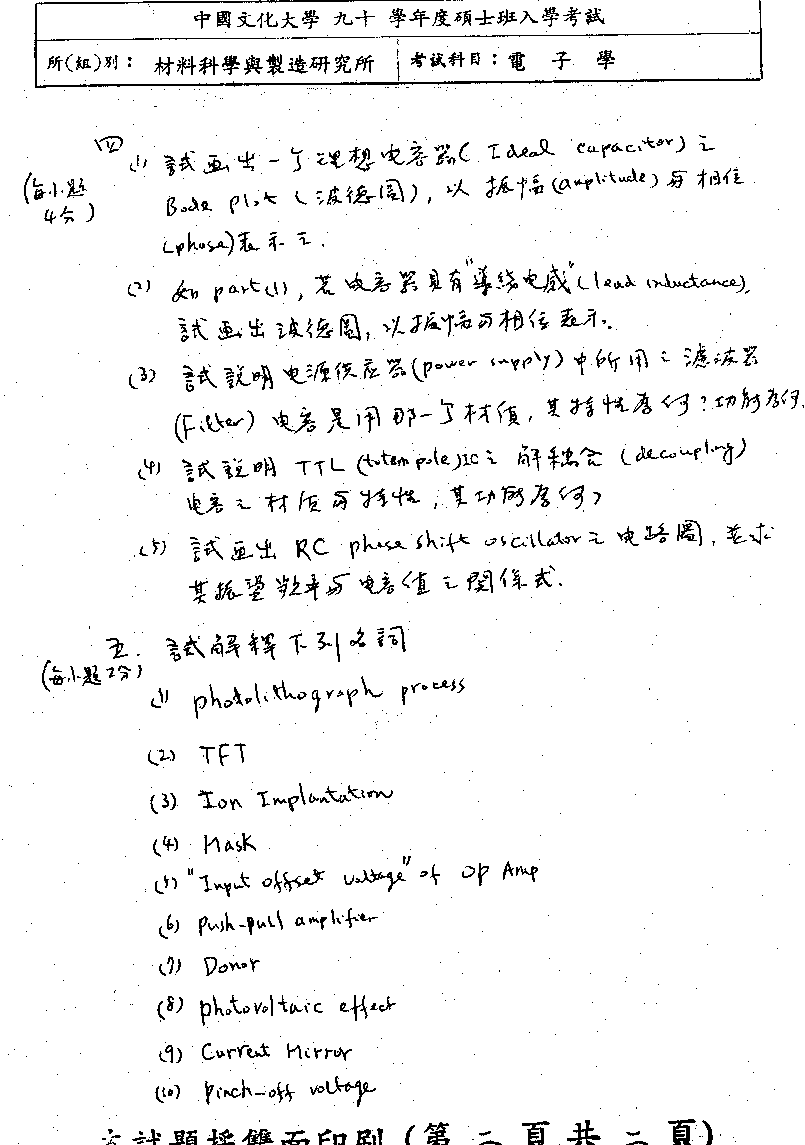 中國文化大學 九十 學年度碩士班入學考試
所(組)別: 材料科學與製造研究所 考試科目: 電 子 學
四
(每小題4分)
(1) 試画出一个理想电容器( Ideal capacitor) 之
Bode plot (波德圖), 以 振幅(amplitude) 与 相位
(phase)表示之.
(2) 如 part(1), 若电容器具有"導线电感"(lead inductance),
試画出波德圖, 以振幅与相位表示.
(3) 試說明电源供应器(power supply)中所用之濾波器
(Filter) 电容是用那一个材質, 其特性為何? 功能為何.
(4) 試說明 TTL (totem pole)IC之 解耦合 (decoupling)
电容之材質与特性, 其功能為何?
(5) 試画出 RC phase shift oscillator 之 电路圖, 並求
其振盪频率与电容值之関係式.
五. 試解釋下列名詞
(每小題2分)
(1) photolithograph process
(2) TFT
(3) Ion Implantation
(4) Mask
(5) "Input offset voltage" of OP Amp
(6) Push-pull amplifier
(7) Donor
(8) photovoltaic effect
(9) Current Mirror
(10) pinch-off voltage
本試題採雙面印刷 (第 二 頁 共 二 頁)